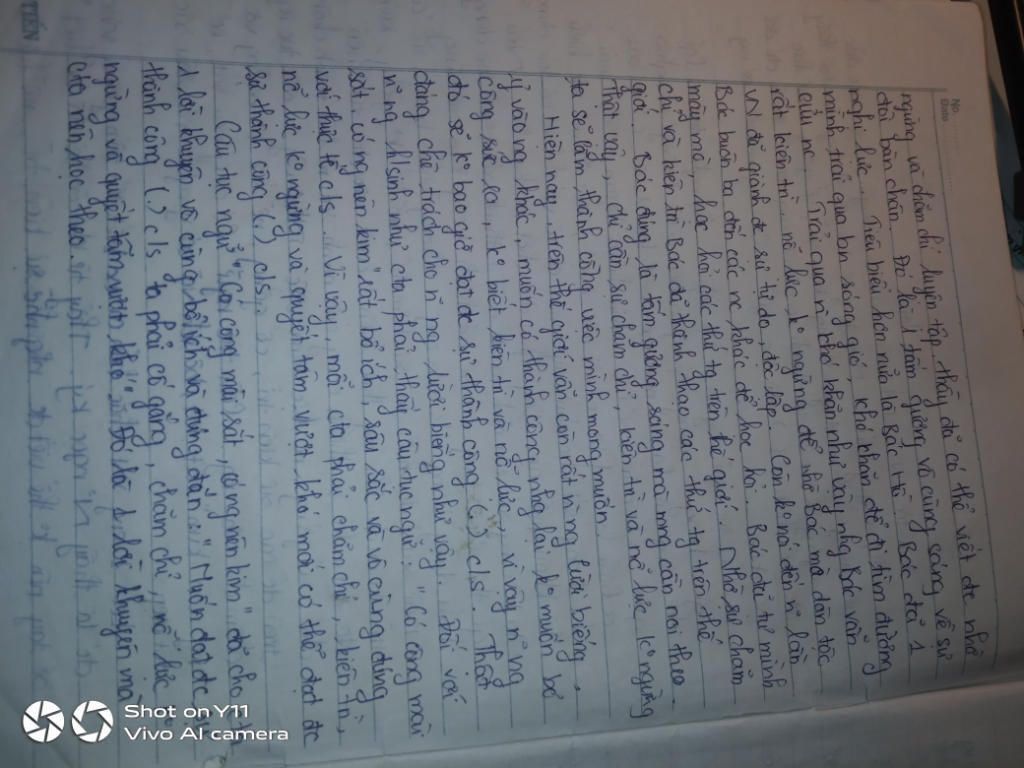 No.
Date
ngừng và chăm chỉ luyện tập, thầy đã có thể viết đc nhờ
đôi bàn chân. Đó là 1 tấm gương vô cùng sáng về sự
nghị lực. Tiêu biểu hơn nữa là Bác Hồ. Bác đã 1
mình trải qua bn sóng gió, khó khăn để đi tìm đường
cứu nc. Trải qua n~ khó khăn như vậy nhg Bác vẫn
rất kiên trì, nỗ lực k° ngừng để nhờ Bác mà dân tộc
VN đã giành đc sự tự do, độc lập. Còn k° nói đến n~ lần
Bác buôn ba đến các nc khác để học hỏi. Bác đã tự mình
mày mò, học hỏi các thứ tg trên thế giới. Nhờ sự chăm
chỉ và kiên trì Bác đã thành thạo các thứ tg trên thế
giới. Bác đúng là tấm gương sáng mà mng cần noi theo.
Thật vậy, chỉ cần sự chăm chỉ, kiên trì và nỗ lực k° ngừng
ta sẽ làm thành công việc mình mong muốn.
Hiện nay, trên thế giới vẫn còn rất n~ ng lười biếng,
ỷ vào ng khác, muốn có thành công nhg lại k° muốn bỏ
công sức ra, k° biết kiên trì và nỗ lực, vì vậy n~ ng
đó sẽ k° bao giờ đạt đc sự thành công (.) c/s. Thật
đáng chê trách cho n~ ng lười biếng như vậy. Đối với
n~ ng h/sinh như cta phải thấy câu tục ngữ: "Có công mài
sắt có ng nên kim" rất bổ ích, sâu sắc và vô cùng đúng
với thực tế c/s. Vì vậy, mỗi cta phải chăm chỉ, kiên trì,
nỗ lực k° ngừng và quyết tâm vượt khó mới có thể đạt đc
sự thành công (.) c/s.
Câu tục ngữ "Có công mài sắt, có ng nên kim" đã cho
1 lời khuyên vô cùng bổ ích và đúng đắn. Muốn đạt đc sự
thành công (.) c/s ta phải cố gắng, chăm chỉ, nỗ lực k°
ngừng và quyết tâm vượt khó. Đó là 1 lời khuyên mà
cta nên học theo.
TIẾN
Shot on Y11
Vivo AI camera